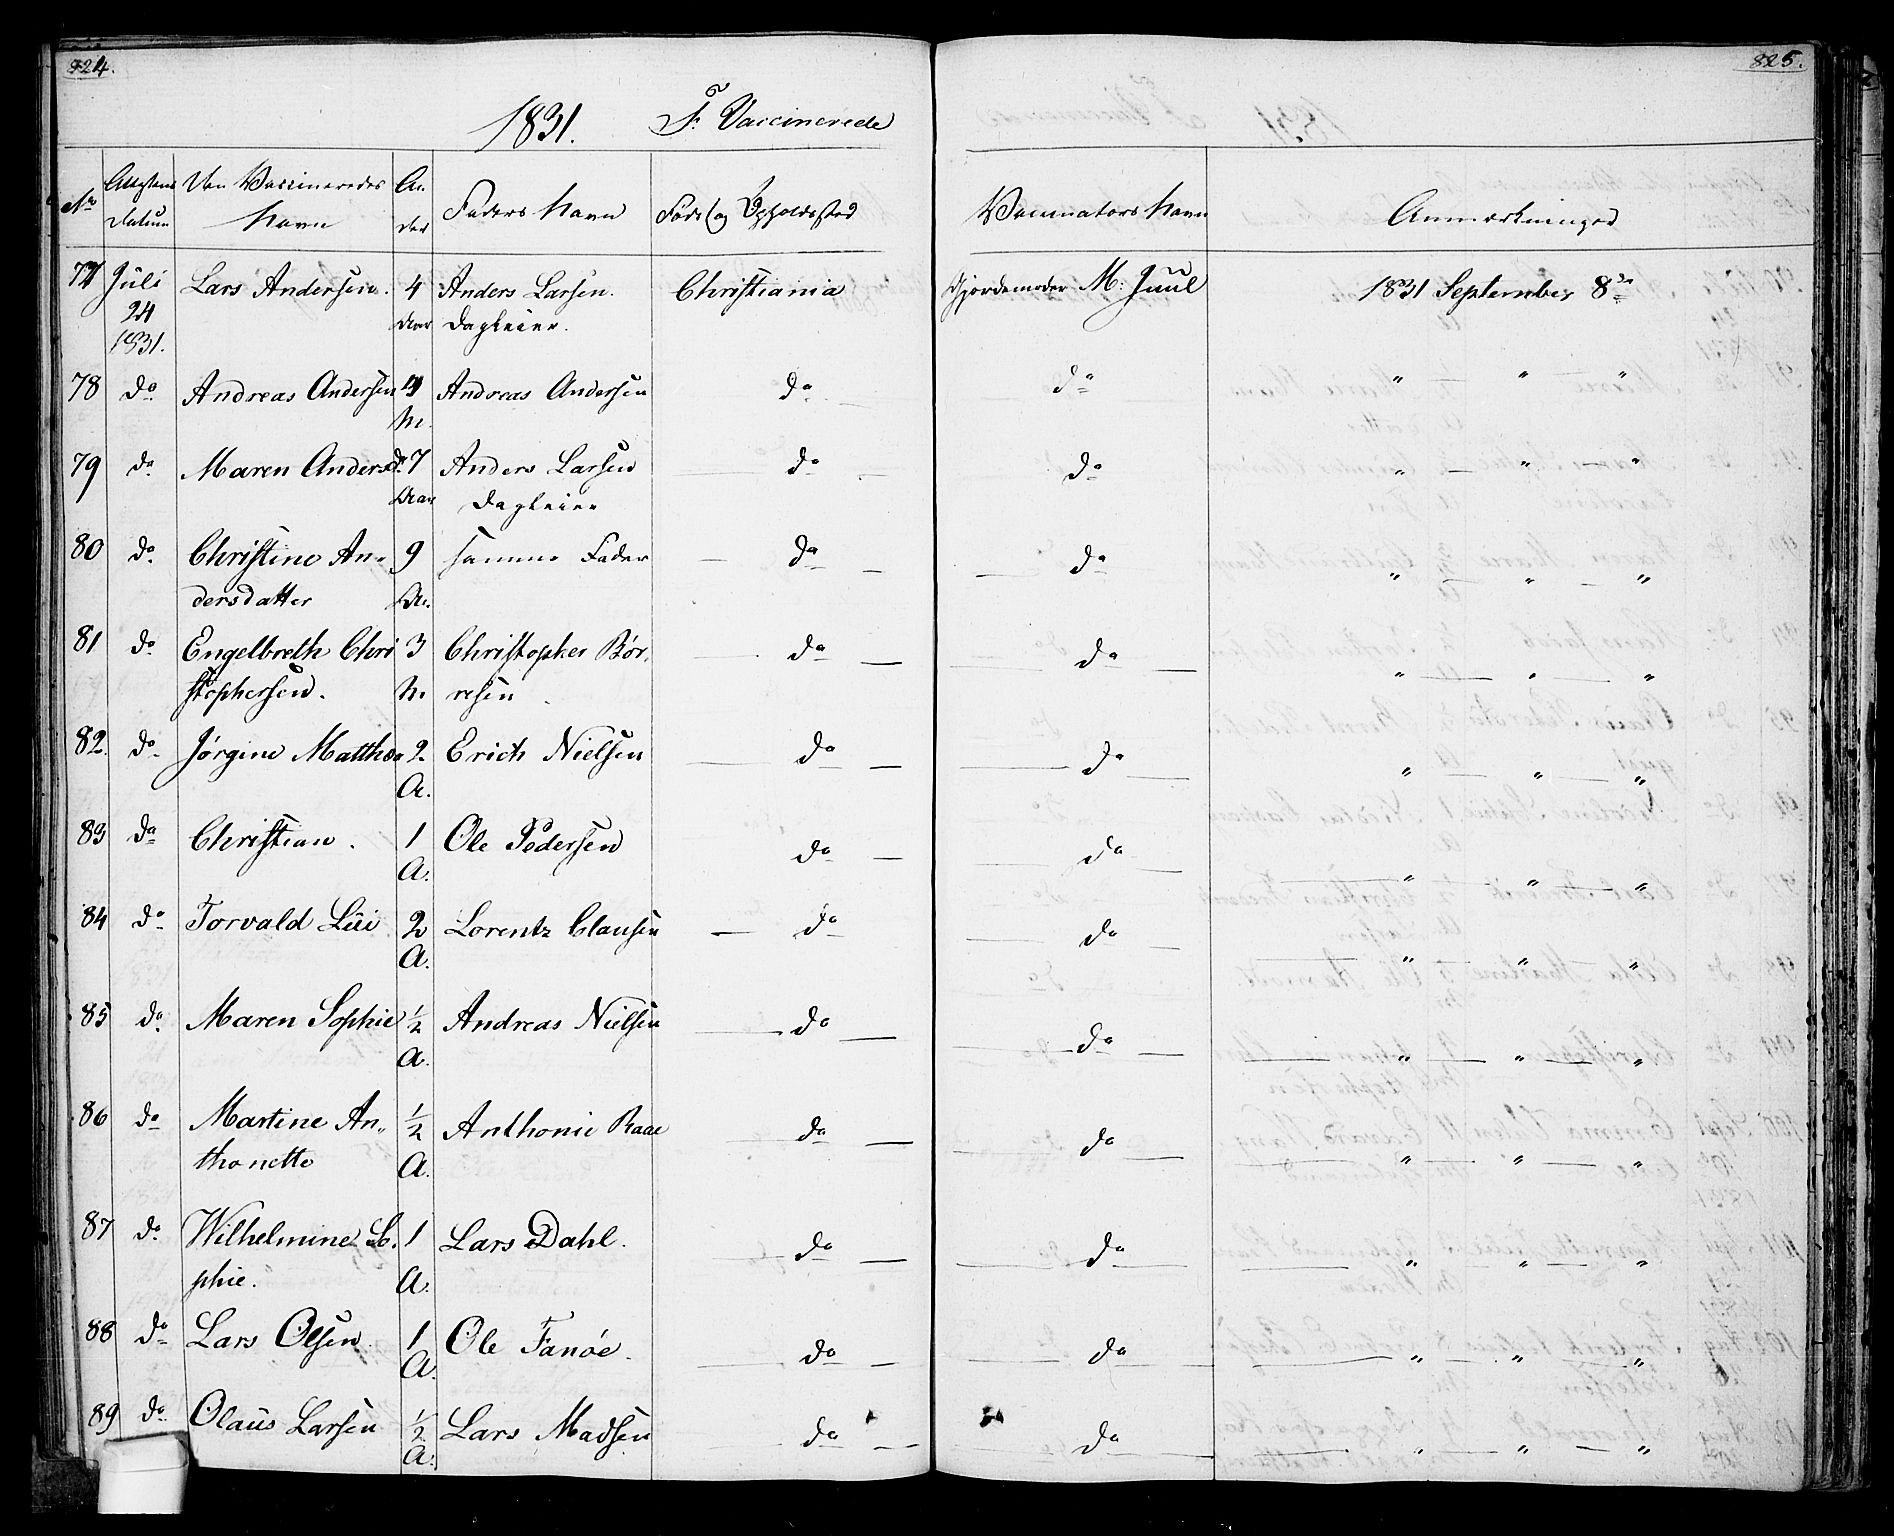 824.
1831. F. Vaccinerede
No Attestens Datum Den Vaccineredes Navn Alder Faders Navn Føde og Opholdssted
77 Juli 24 1831. Lars Andersen. 4 Aar Anders Larsen. Dagleier. Christiania
78 do Andreas Andersen M. Andreas Andersen do
79 do Maren Andersd. 7 Aar Anders Larsen Dagleier do
80 do Christine An- 9 samme Fader do
dersdatter Aar
81 do Engelbreth Chri 3 Christopher Bør- do
stophersen. M. resen
82. do Jørgine Matthea 2 Erich Nielsen do
A.
83 do Christian. 1 Ole Pedersen do
A.
84 do Torvald 2 Lorentz Clausen do
A.
85 do Maren Sophie 1/2 Andreas Nielsen do
A.
86 do Martine An„ 1/2 Anthonie Raae do
thonette A.
87 do Wilhelmine So- 1 Lars Dahl. do
phie. A.
88 do Lars Olsen 1 Ole Fanøe. do
A.
89 do Olaus Larsen 1/2 Lars Madsen do
A.
825.
Vaccinators Navn Anmærkninger
Gjordemoder M: Juul 1831 September 8de
do " " "
do " — " — "
do " — " — "
do " — " — "
do " — " — "
do " — " — "
do " — " — "
do " — " — "
do " — " — "
do " — " — "
do " — " — "
do " — " — "